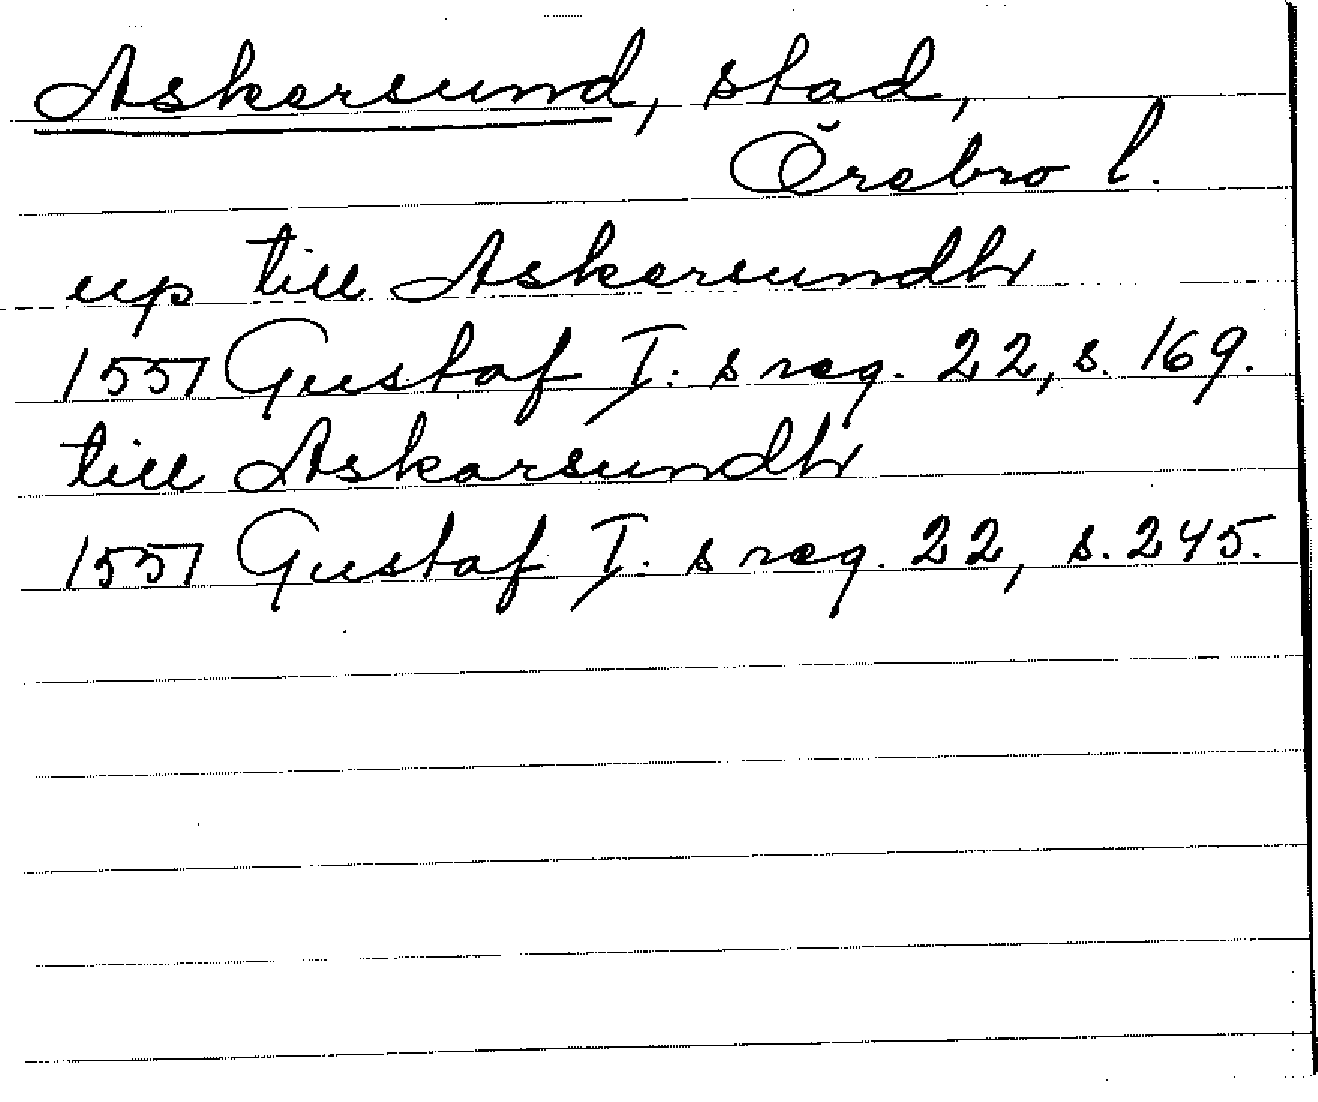 Askersund, stad,
Örebro l.
up till Askersundh
1551 Gustaf I: s reg. 22, s. 169.
till Askarsundh
1551 Gustaf I: s reg. 22, s. 245.